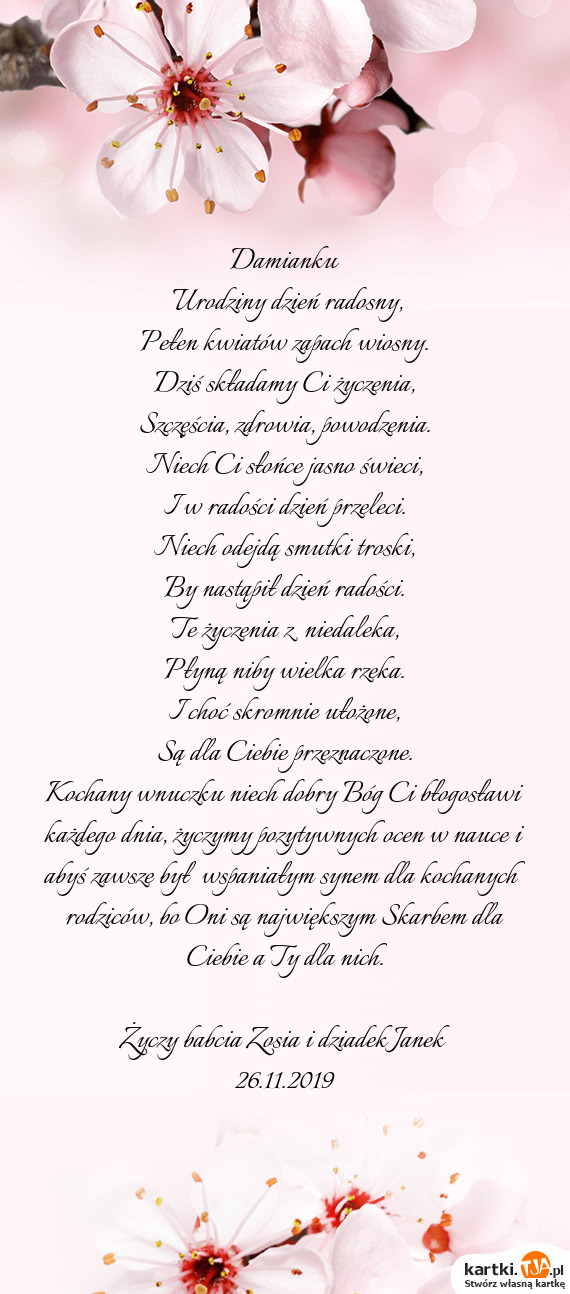 Damianku
Urodziny dzień radosny,
Pełen kwiatów zapach wiosny.
Dziś składamy Ci życzenia,
Szczęścia, zdrowia, powodzenia.
Niech Ci słońce jasno świeci,
I w radości dzień przeleci.
Niech odejdą smutki troski,
By nastąpił dzień radości.
Te życzenia z niedaleka,
Płyną niby wielka rzeka.
I choć skromnie ułożone,
Są dla Ciebie przeznaczone.
Kochany wnuczku niech dobry Bóg Ci błogosławi
każdego dnia, życzymy pozytywnych ocen w nauce i
abyś zawsze był wspaniałym synem dla kochanych
rodziców, bo Oni są największym Skarbem dla
Ciebie a Ty dla nich.
Życzy babcia Zosia i dziadek Janek
26.11.2019
kartki.TJA.pl
Stwórz własną kartkę